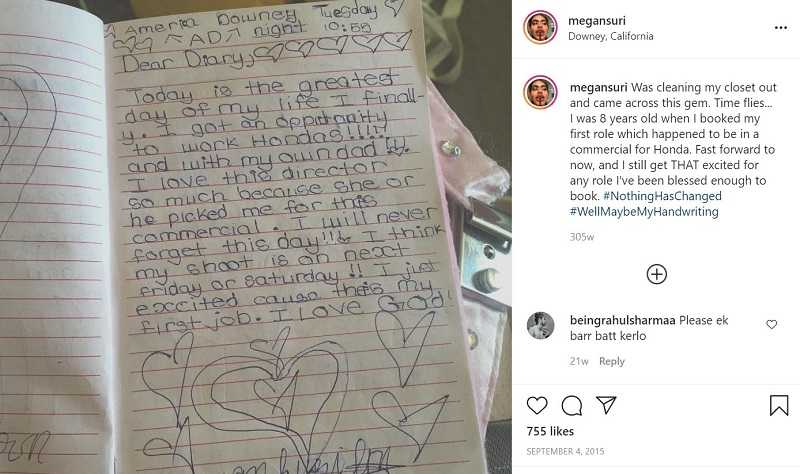 America Downey Tuesday
AD night 10:55
Dear Diary,
Today is the greatest
day of my life I finall-
y. I got an
to work Hondas!!!!!
and with my own dad!!!
I love this director
so much because she or
he picked me for this
commercial. I will never
forget this day!!! I think
my shoot is on next
friday or saturday!! I just
exccited cause this my
first job. I love God!
megansuri
Downey, California
megansuri Was cleaning my closet out
and came across this gem. Time flies...
I was 8 years old when I booked my
first role which happened to be in a
commercial for Honda. Fast forward to
now, and I still get THAT excited for
any role I've been blessed enough to
book. #NothingHasChanged
#WellMaybeMyHandwriting
305w
beingrahulsharmaa Please ek
barr batt kerlo
21w Reply
755 likes
SEPTEMBER 4, 2015